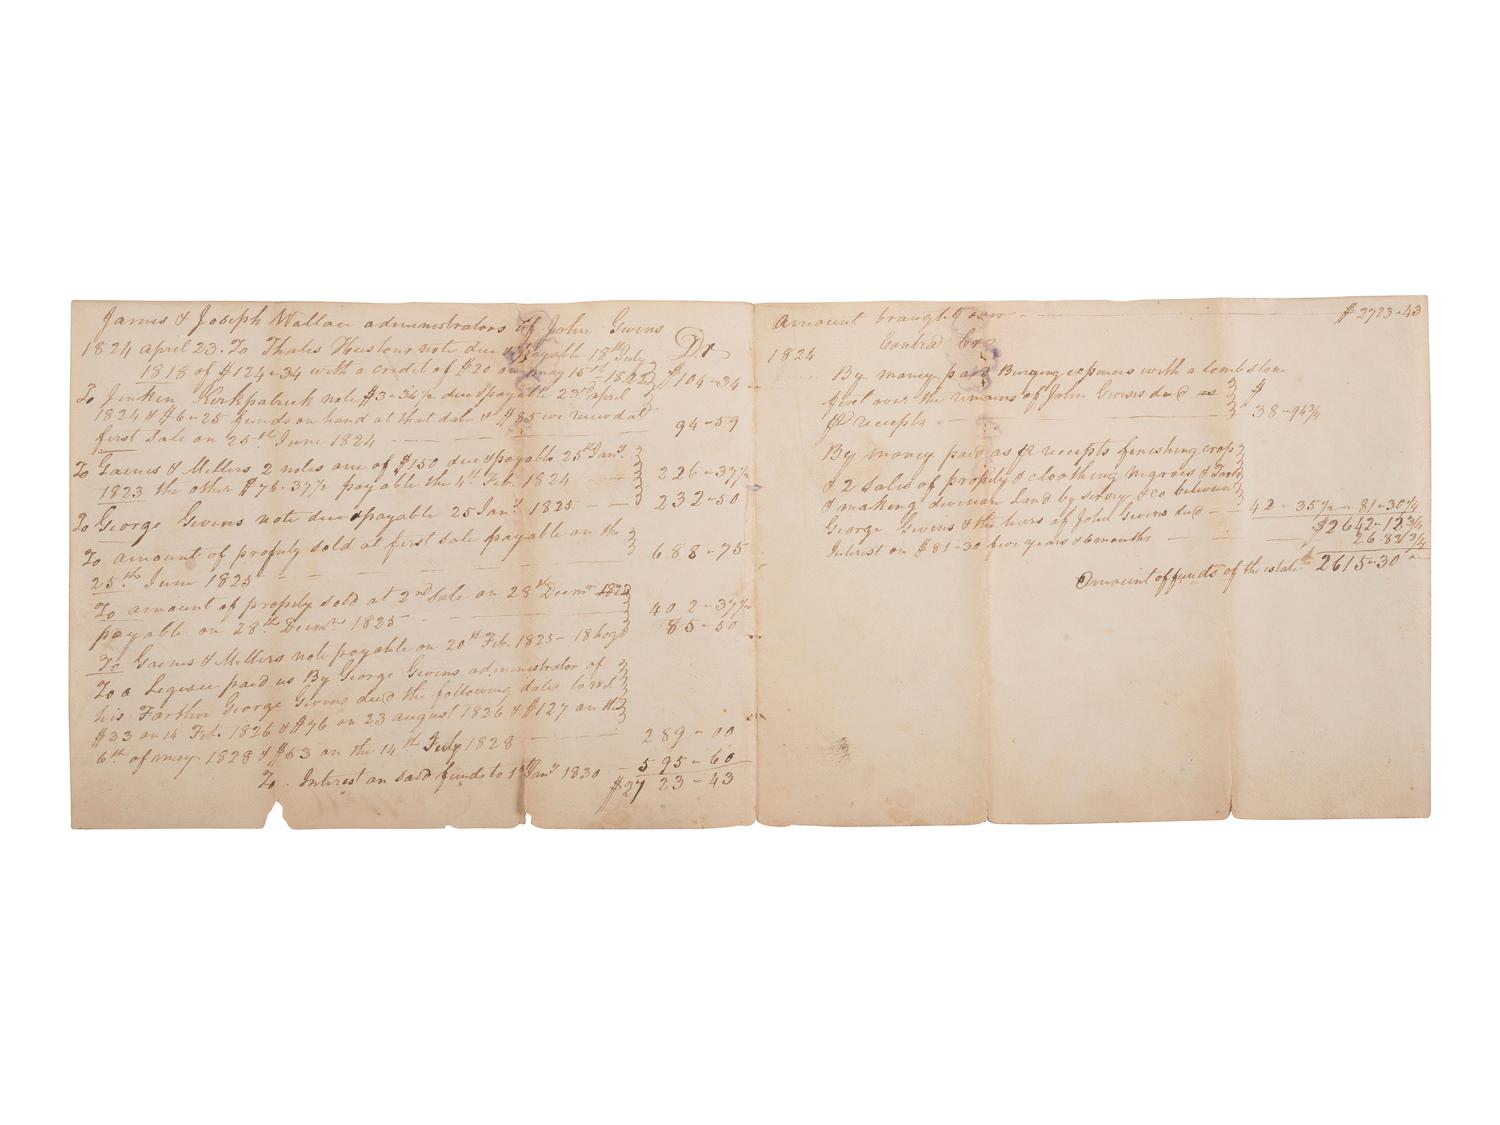 James & Joseph Wallace administrators of John Givens
1824 april 23. To Thales Hustons note due & payable 18th July Dr
1818 of $124-34 with a credit of $20 on may 15th 1822 $104-34
To Jenken Kirkpatrick note $3-34½ due & payable 23rd april
1824 & $6-25 funds on hand at that date & $85 we received at
first Sale on 25th June 1824 94-59
To Gaines & Millers 2 notes one of $150 due & payable 25th Jany.
1823 the other $76-37½ payable the 4th Feb. 1824 226-37½
To George Givens note due & payable 25 Jany. 1825 232-50
To amount of propety sold at first sale payable on the
25th June 1825 688-75
To amount of propety sold at 2nd Sale on 28th Decmr 1823
payable on 28th Decmr. 1825 402-37½
To Gaines & Millers note payable on 20th Feb. 1825 - 18 hogs 85-50
To a Legesee paid us By George Givens administrator of
his Farther George Givens decd the following dates to wit
$33 on 14 Feb. 1826 & $76 on 23 august 1826 & $127 on the
6th of may 1828 & $53 on the 14th July 1828 289-00
To. Interest on said funds to 1st Jany 1830 595-60
$2723-43
Amount braught over $2723-43
1824 Contra Crs
By money paid Burying expences with a tombstone
fixel over the remains of John Givens decd as $
pr receipts 38-94¾
By money paid as pr receipts finishing crop
& 2 Sales of propety & cloathing Negroes &
& making division Land by survey & co between
George Givens & the hiers of John Givens decd 42-35½ - 81-30¼
$2642-12¾
Interest on $81-30 five years & 6 months 26.82¾
Amount of funds of the estate 2615-30